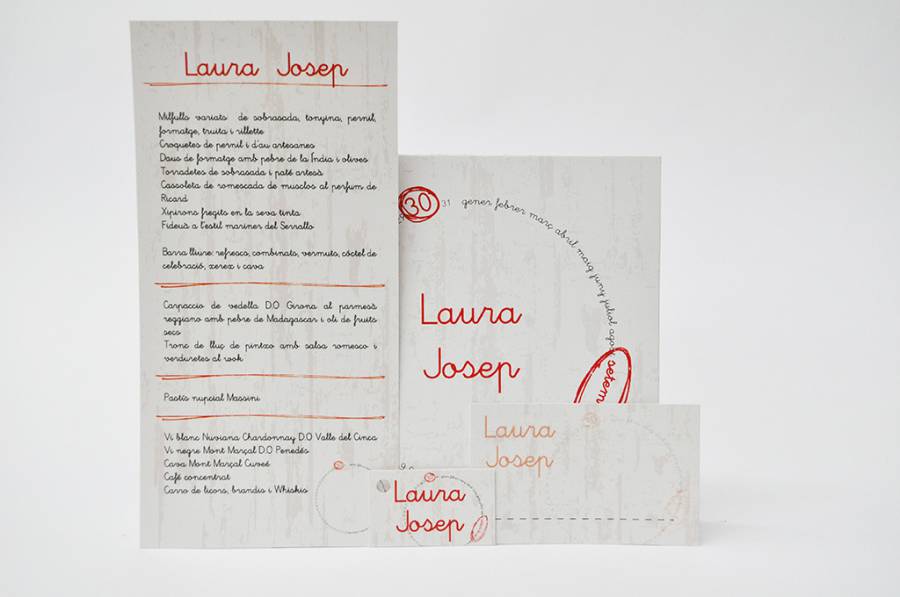 Laura Josep
Milfulls variats de sobrasada, tonyina, pernil,
formatge, truita i rillette
Croquetes de pernil i d'au artesanes
Daus de formatge amb pebre de la Índia i olives
Torradetes de sobrasada i paté artesà
Cassoleta de romescada de musclos al perfum de
Ricard
Xipirons fregits en la seva tinta
Fideus a l'estil mariner del Serrallo
Barra lliure: refresco, combinats, vermuts, cóctel de
celebració, xerex i cava
Carpaccio de vedella D.O Girona al parmesà
reggiano amb pebre de Madagascar i oli de fruits
secs
Tronc de lluç de pintxo amb salsa romesco i
verduretes al wook
Pastís nupcial Massini
Vi blanc Nuviana Chardonnay D.O Valle del Cinca
Vi negre Mont Marçal D.O Penedés
Cava Mont Marçal Cuveé
Café concentrat
Carro de licors, brandis i Whiskis
30 31 gener febrer març abril maig juny juliol agos setem
Laura
Josep
Laura
Josep
Laura
Josep